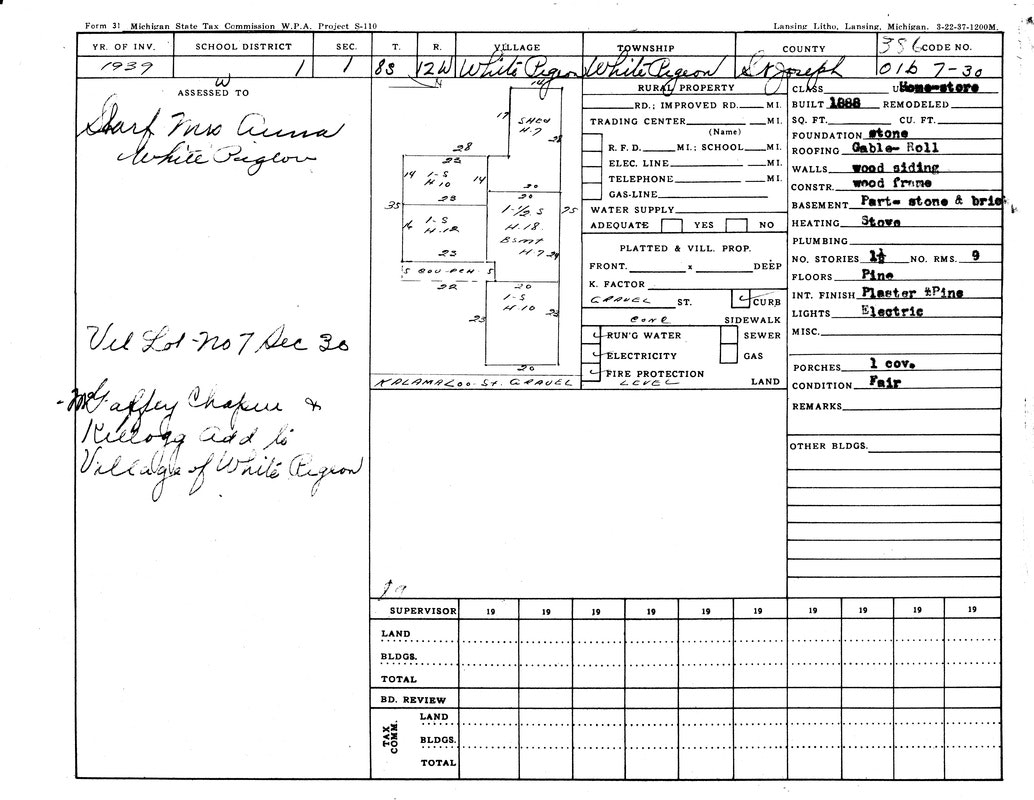 Form 31 Michigan State Tax Commission W.P.A. Project S-110
Lansing Litho, Lansing, Michigan. 3-22-37-1200M.
YR. OF INV. SCHOOL DISTRICT SEC. T. R. VILLAGE TOWNSHIP COUNTY 386 CODE NO.
1939 1 1 8S 12W White Pigeon White Pigeon St Joseph 01b 7-30
W
ASSESSED TO
Mrs Anna
White Pigeon
Vil Lot No 7 Sec 30
Chapin &
Kellogg Add to
Village of White Pigeon
N
14
17
SHED
H.7
28
28
23
14
1-S
H 10
14
23
35
16
1-S
H-12
23
5 COV-PCH 5
22
20
20
1-1/2 S
H.18
BSMT
H.7
75
24
20
1-S
H 10
23
23
20
KALAMAZOO-ST. GRAVEL
RURAL PROPERTY
RD.; IMPROVED RD. MI.
TRADING CENTER MI.
(Name)
R. F. D. MI.; SCHOOL MI.
ELEC. LINE MI.
TELEPHONE MI.
GAS-LINE
WATER SUPPLY
ADEQUATE YES NO
PLATTED & VILL. PROP.
FRONT. x DEEP
K. FACTOR
GRAVEL ST. ✓ CURB
CONC SIDEWALK
✓ RUN'G WATER SEWER
✓ ELECTRICITY GAS
✓ FIRE PROTECTION
LEVEL LAND
CLASS Home-store
BUILT 1888 REMODELED
SQ. FT. CU. FT.
FOUNDATION stone
ROOFING Gable- Roll
WALLS wood siding
CONSTR. wood frame
BASEMENT Part- stone & bric
HEATING Stove
PLUMBING
NO. STORIES 1½ NO. RMS. 9
FLOORS Pine
INT. FINISH Plaster &Pine
LIGHTS Electric
MISC.
PORCHES 1 cov.
CONDITION Fair
REMARKS
OTHER BLDGS.
SUPERVISOR 19 19 19 19 19 19 19 19 19 19
LAND
BLDGS.
TOTAL
BD. REVIEW
TAX COMM.
LAND
BLDGS.
TOTAL